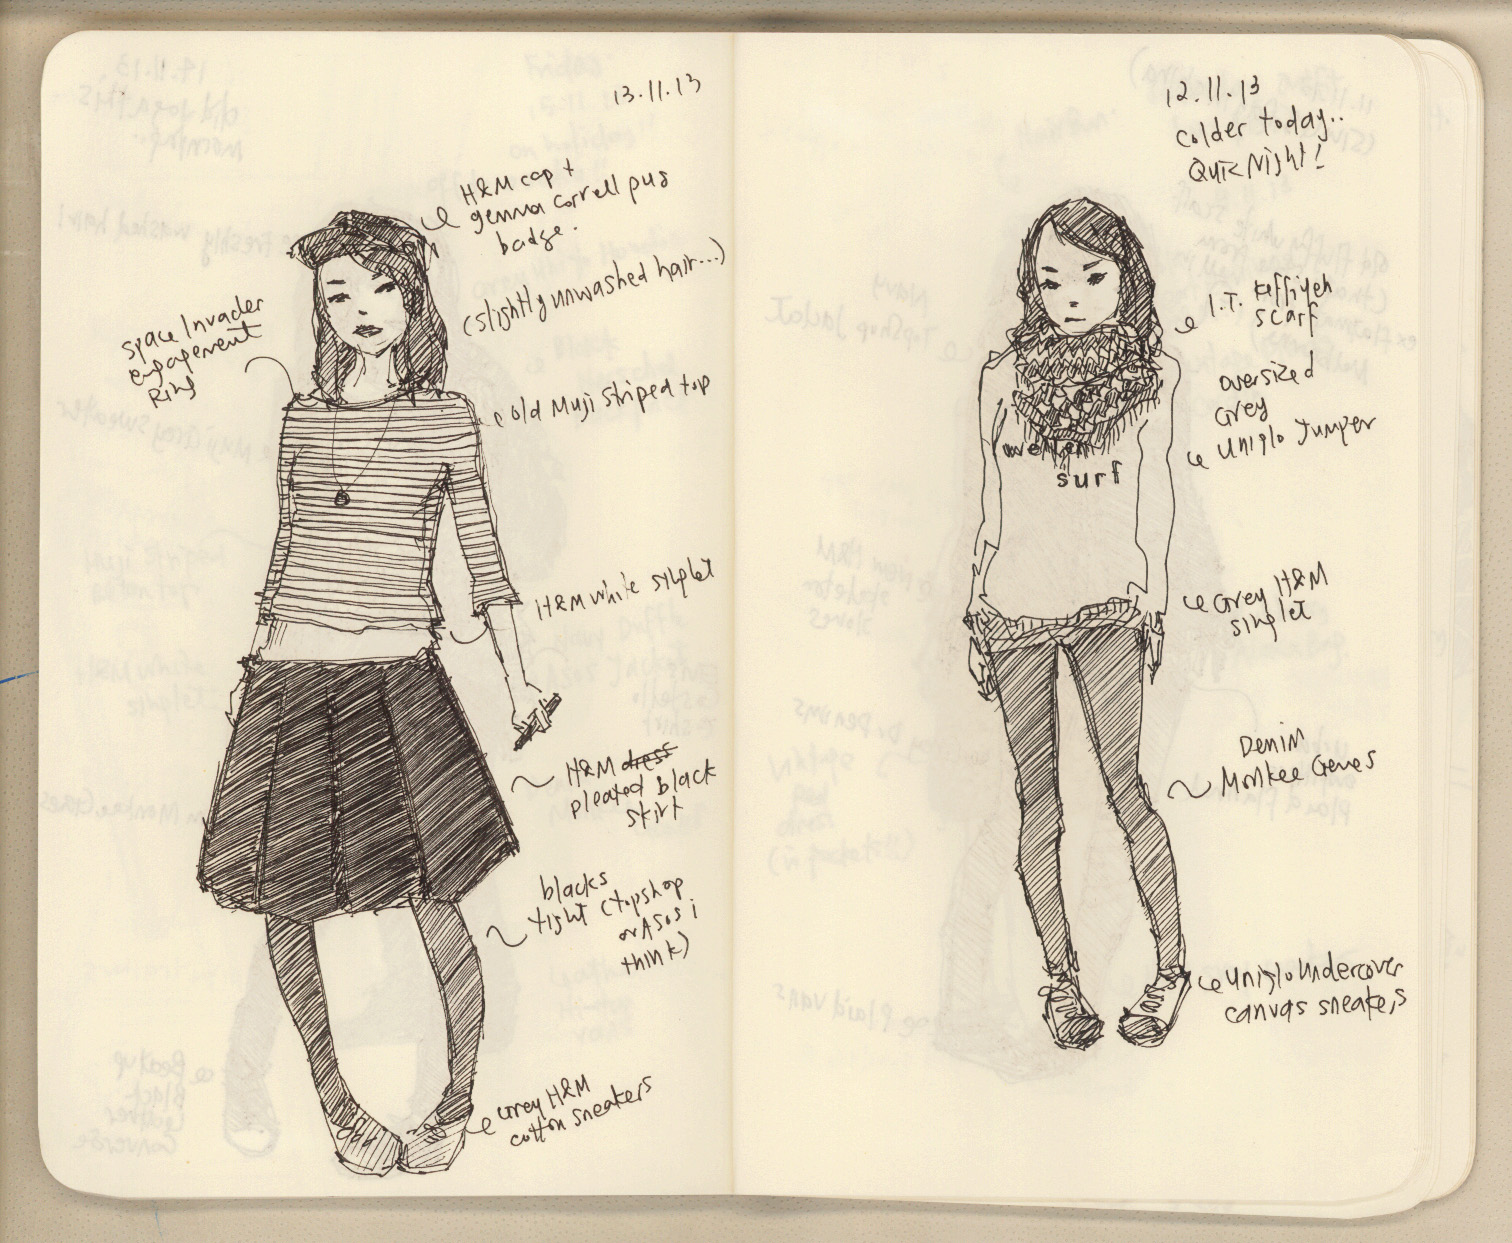 13.11.13
H&M cap +
gemma correll pug
badge.
(slightly unwashed hair...)
Space Invader
engagement
Ring
old Muji striped top
H&M white singlet
H&M dress
pleated black
skirt
blacks
tight (topshop
or ASOS i
think)
Grey H&M
cotton sneakers
12.11.13
Colder today..
Quiz Night!
I.T. Keffiyeh
scarf
oversized
Grey
Uniqlo Jumper
surf
Grey H&M
singlet
Denim
Monkee Genes
Uniqlo Undercover
canvas sneakers